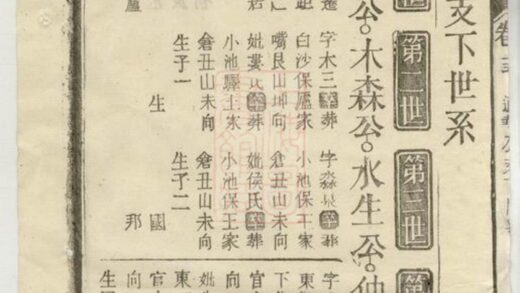 支下世系
世 第二世 第三世 第
公 木森公 水生公 仲
字木三卒葬 字淼泉卒葬 字
白沙保盧家 小池保王家 東
嘴艮山坤向 倉丑山未向 下
妣婁氏卒葬 妣侯氏卒葬 官
小池驛王家 小池保王家 向
倉丑山未向 倉丑山未向 妣
生子一 生子二 東
生 國 官
邦 向
生